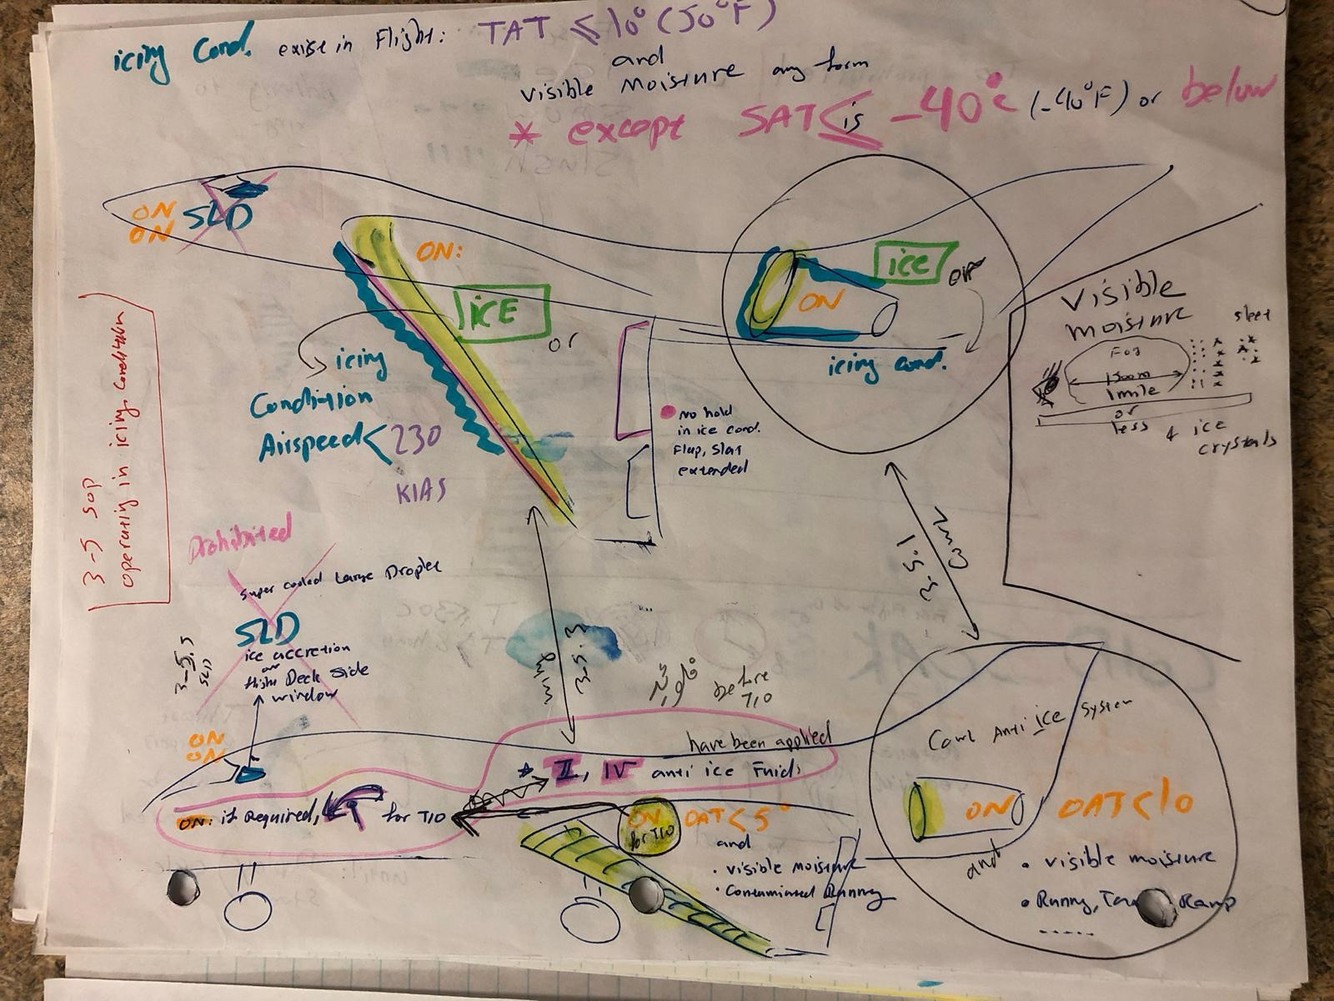 icing Cond. exist in Flight: TAT ≤ 10° (50°F)
and
visible Moisture any form
* except SAT ≤ is -40°c (-40°F) or below
ON
ON
SLD
ON:
ICE
or
icing
Condition
Airspeed < 230
KIAS
ice
or
ON
icing cond.
no hold
in ice cond.
Flap, Slat
extended
Visible
moisture
sleet
Fog
1500m
1mile
or
less
& ice
crystals
3-5 SOP
operatig in icing Condition
Prohibited
super cooled Large Droplet
SLD
ice accretion
or
flight Deck side
window
3-5.5
SLD
wing
3-5.3
Cowl
3-5.1
before
T/O
ON
ON
have been applied
* II, IV anti ice Fluids
ON: if Required, for T/O
ON
for T/O
OAT < 5°
and
• visible moisture
• Contaminated Runny
Cowl Anti Ice System
ON
OAT < 10
and • visible moisture
• Runny, Ramp
.....